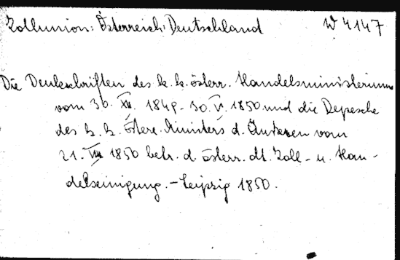 Zollunion: Österreich: Deutschland W 4147
Die Denkschriften des k. k. österr. Handelsministeriums
vom 30. XII. 1849. 30. V. 1850 und die Depesche
des k. k. österr. Ministers d. Äusseren vom
21. VII 1850 betr. d. österr. dt. Zoll- u. Han-
delseinigung. - Leipzig 1850.